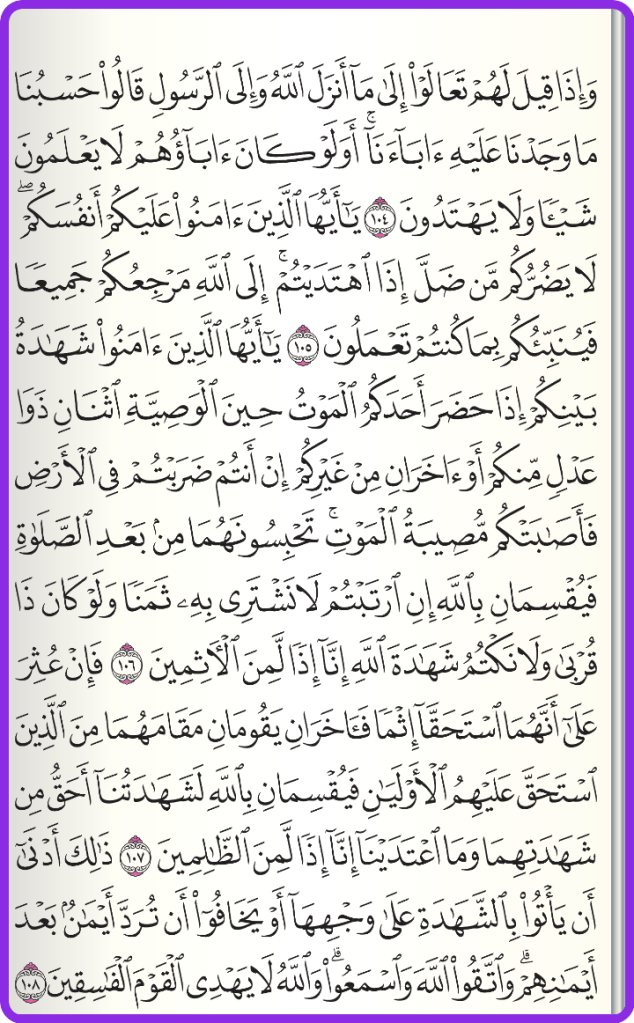 وَإِذَا قِيلَ لَهُمْ تَعَالَوْا۟ إِلَىٰ مَآ أَنزَلَ ٱللَّهُ وَإِلَى ٱلرَّسُولِ قَالُوا۟ حَسْبُنَا
مَا وَجَدْنَا عَلَيْهِ ءَابَآءَنَآ ۚ أَوَلَوْ كَانَ ءَابَآؤُهُمْ لَا يَعْلَمُونَ
شَيْـًٔا وَلَا يَهْتَدُونَ ١٠٤ يَـٰٓأَيُّهَا ٱلَّذِينَ ءَامَنُوا۟ عَلَيْكُمْ أَنفُسَكُمْ ۖ
لَا يَضُرُّكُم مَّن ضَلَّ إِذَا ٱهْتَدَيْتُمْ ۚ إِلَى ٱللَّهِ مَرْجِعُكُمْ جَمِيعًا
فَيُنَبِّئُكُم بِمَا كُنتُمْ تَعْمَلُونَ ١٠٥ يَـٰٓأَيُّهَا ٱلَّذِينَ ءَامَنُوا۟ شَهَـٰدَةُ
بَيْنِكُمْ إِذَا حَضَرَ أَحَدَكُمُ ٱلْمَوْتُ حِينَ ٱلْوَصِيَّةِ ٱثْنَانِ ذَوَا
عَدْلٍ مِّنكُمْ أَوْ ءَاخَرَانِ مِنْ غَيْرِكُمْ إِنْ أَنتُمْ ضَرَبْتُمْ فِى ٱلْأَرْضِ
فَأَصَـٰبَتْكُم مُّصِيبَةُ ٱلْمَوْتِ ۚ تَحْبِسُونَهُمَا مِنۢ بَعْدِ ٱلصَّلَوٰةِ
فَيُقْسِمَانِ بِٱللَّهِ إِنِ ٱرْتَبْتُمْ لَا نَشْتَرِى بِهِۦ ثَمَنًا وَلَوْ كَانَ ذَا
قُرْبَىٰ وَلَا نَكْتُمُ شَهَـٰدَةَ ٱللَّهِ إِنَّآ إِذًا لَّمِنَ ٱلْـَٔاثِمِينَ ١٠٦ فَإِنْ عُثِرَ
عَلَىٰٓ أَنَّهُمَا ٱسْتَحَقَّآ إِثْمًا فَـَٔاخَرَانِ يَقُومَانِ مَقَامَهُمَا مِنَ ٱلَّذِينَ
ٱسْتَحَقَّ عَلَيْهِمُ ٱلْأَوْلَيَـٰنِ فَيُقْسِمَانِ بِٱللَّهِ لَشَهَـٰدَتُنَآ أَحَقُّ مِن
شَهَـٰدَتِهِمَا وَمَا ٱعْتَدَيْنَآ إِنَّآ إِذًا لَّمِنَ ٱلظَّـٰلِمِينَ ١٠٧ ذَٰلِكَ أَدْنَىٰٓ
أَن يَأْتُوا۟ بِٱلشَّهَـٰدَةِ عَلَىٰ وَجْهِهَآ أَوْ يَخَافُوٓا۟ أَن تُرَدَّ أَيْمَـٰنٌۢ بَعْدَ
أَيْمَـٰنِهِمْ ۗ وَٱتَّقُوا۟ ٱللَّهَ وَٱسْمَعُوا۟ ۗ وَٱللَّهُ لَا يَهْدِى ٱلْقَوْمَ ٱلْفَـٰسِقِينَ ١٠٨